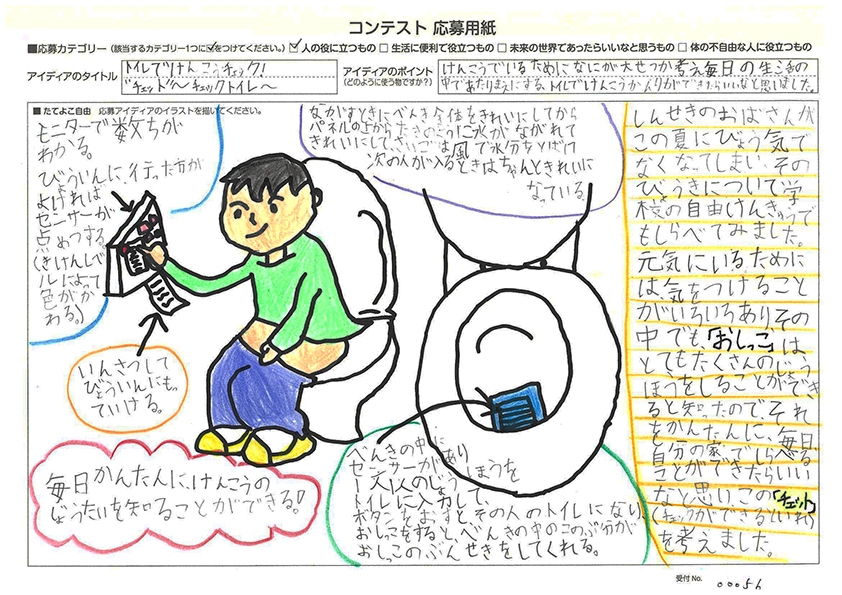 コンテスト 応募用紙
■応募カテゴリー (該当するカテゴリー1つに☑をつけてください。) ☑ 人の役に立つもの □ 生活に便利で役立つもの □ 未来の世界であったらいいなと思うもの □ 体の不自由な人に役立つもの
アイディアのタイトル
トイレでけんこうチェック!
~チェットイレ~
アイディアのポイント
(どのように使う物ですか?)
けんこうでいるためになにが大せつか考え毎日の生活の
中であたりまえにする、トイレでけんこうか
できたらいいなと思いました。
■ たてよこ自由 応募アイディアのイラストを描いてください。
モニターで数ちが
わかる。
びょういんに、行った方が
よければ
センサーが
点めつする。
(きけんレベ
ルによって
色がか
わる。)
いんさつして
びょういんにもっ
ていける。
毎日かんたんに、けんこうの
じょうたいを知ることができる!
ながすときにべんき全体をきれいにしてから
パネルの上からたきのように水がながれて
きれいにして、さいごは風で水分をとばす
次の人が入るときはちゃんときれいに
なっている。
べんきの中に
センサーがあり
一人一人のじょうほうを
トイレに入力して、
ボタンをおすと、その人のトイレになり、
おしっこをすると、べんきの中のこのぶ分が
おしっこのぶんせきをしてくれる。
しんせきのおばさんが
この夏にびょう気で
なくなってしまい、その
びょうきについて学
校の自由けんきゅうで
もしらべてみました。
元気にいるために
は、気をつけること
がいろいろあり、その
中でも、「おしっこ」は
とてもたくさんのじょう
ほうをしることができ
ると知ったので、それ
をかんたんに、毎日、
自分の家で、しらべる
ことができたらいい
なと思い、この「チェット」
(チェックができるトイレ)
を考えました。
受付 No. 00056